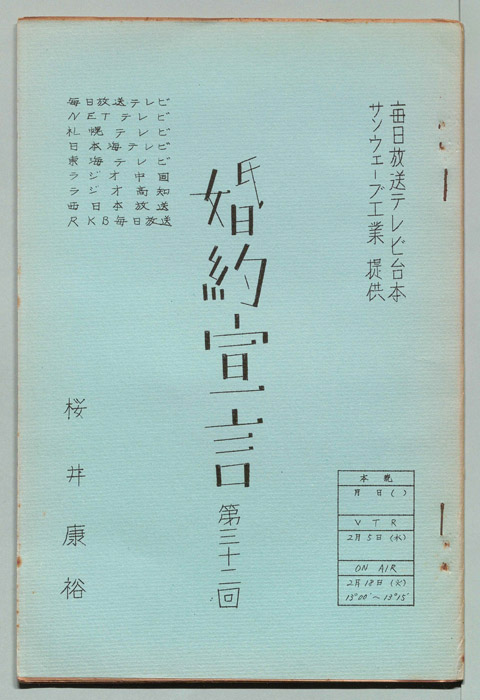 毎日放送テレビ台本
サンウェーブ工業 提供
婚約宣言
第三十二回
毎日放送テレビ
NETテレビ
札幌テレビ
日本海テレビ
東海テレビ
ラジオ中国
ラジオ高知
西日本放送
RKB毎日放送
桜井康裕
本読
月 日( )
VTR
2月5日(水)
ON AIR
2月18日(火)
13°00′〜13°15′